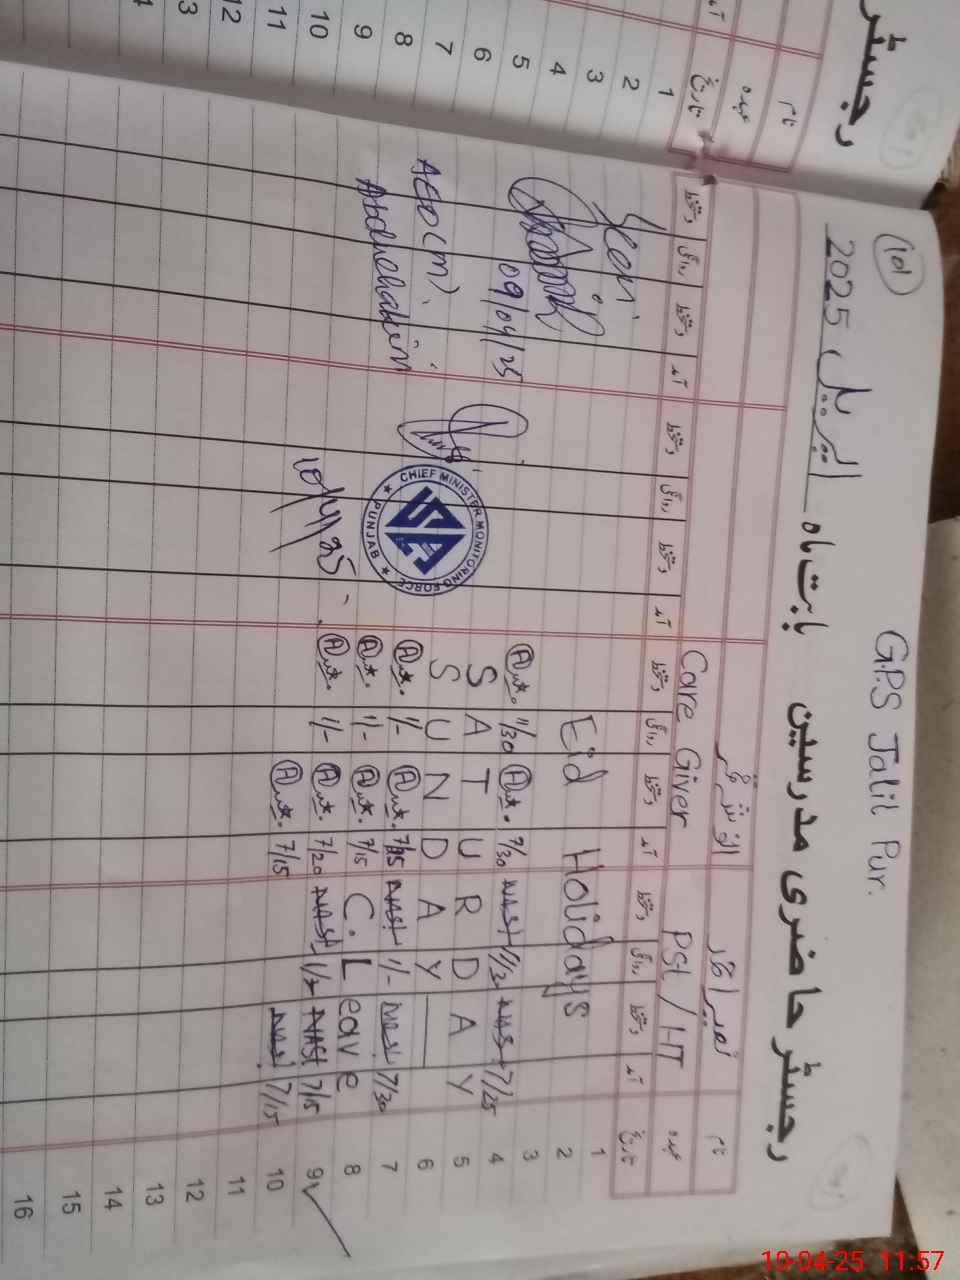 G.P.S Jalil Pur.
101
رجسٹر حاضری مدرسین بابت ماہ اپریل 2025
نام
عہدہ PST / HT Care Giver
تاریخ آمد دستخط روانگی دستخط آمد دستخط روانگی دستخط آمد دستخط روانگی دستخط آمد دستخط روانگی دستخط
1
2 Eid Holidays
3
4 7/25 7/30 11/30
5 SATURDAY
6 SUNDAY
7 7/30 1/-
8 C. Leave 7/15 1/-
9 7/15 7/20 1/-
10 7/15 7/15
11
12
13
14
15
16
09/04/25
AEO (M).
Abdulhakim
CHIEF MINISTER MONITORING FORCE
PUNJAB
10/4/25
رجسٹر
نام
عہدہ
تاریخ
1
2
3
4
5
6
7
8
9
10
11
12
13
10-04-25 11:57